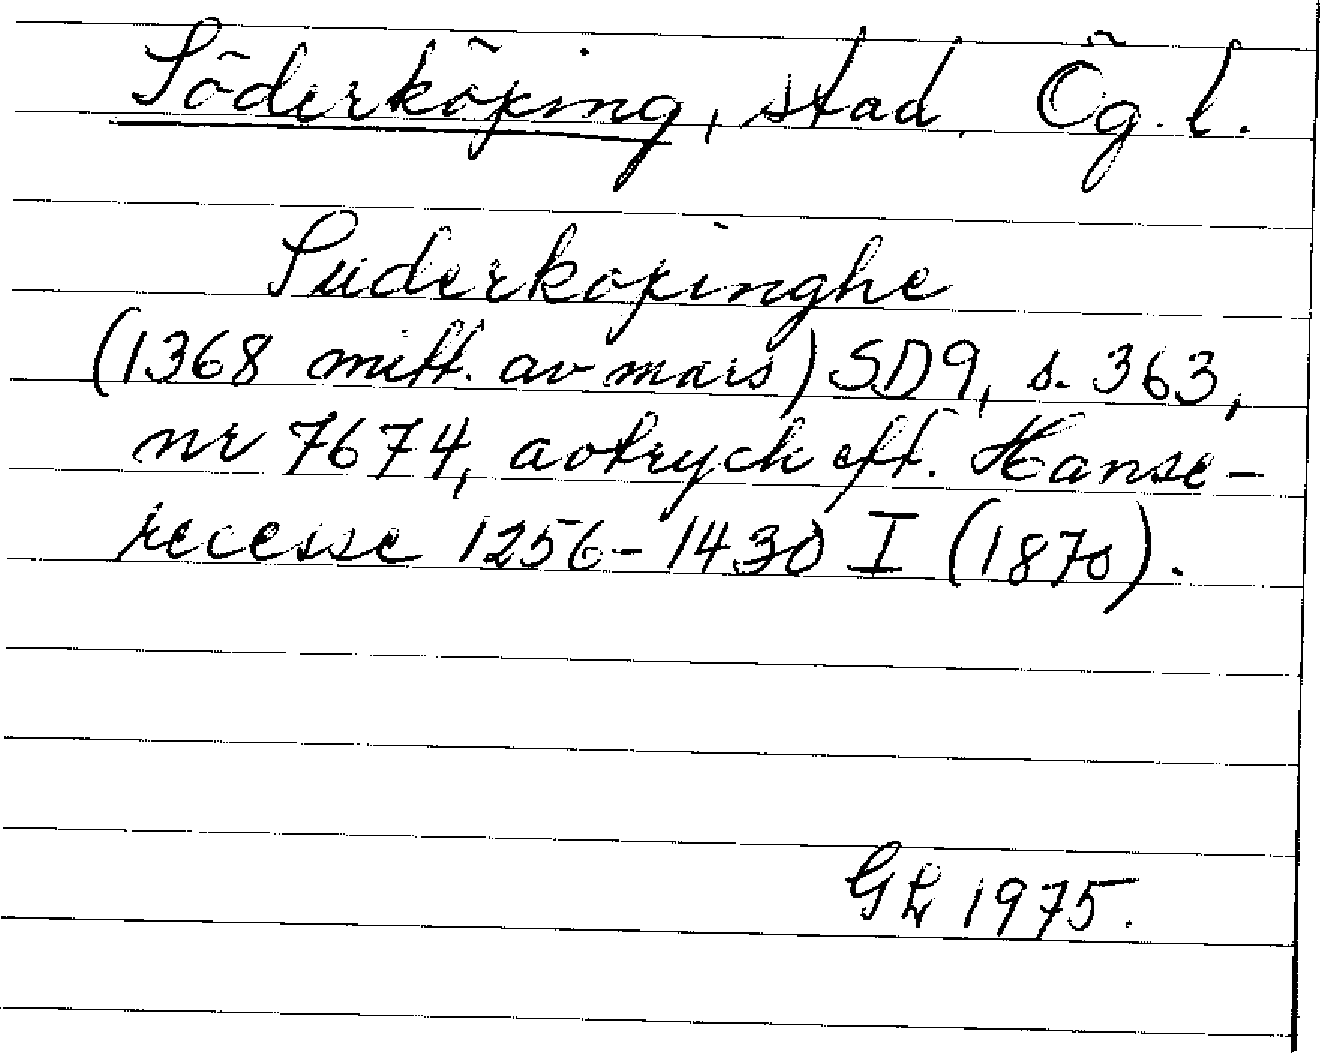 Söderköping, stad, Ög. l.
Suderkopinghe
(1368 mitt. av mars) SD9, s. 363,
nr 7674, avtryck eft. Hanse-
recesse 1256-1430 I (1870).
GL 1975.